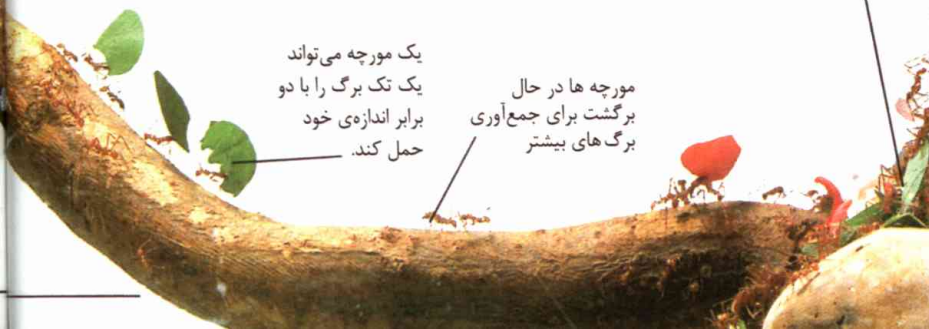 یک مورچه می‌تواند
یک تک برگ را با دو
برابر اندازه‌ی خود
حمل کند.
مورچه ها در حال
برگشت برای جمع‌آوری
برگ های بیشتر